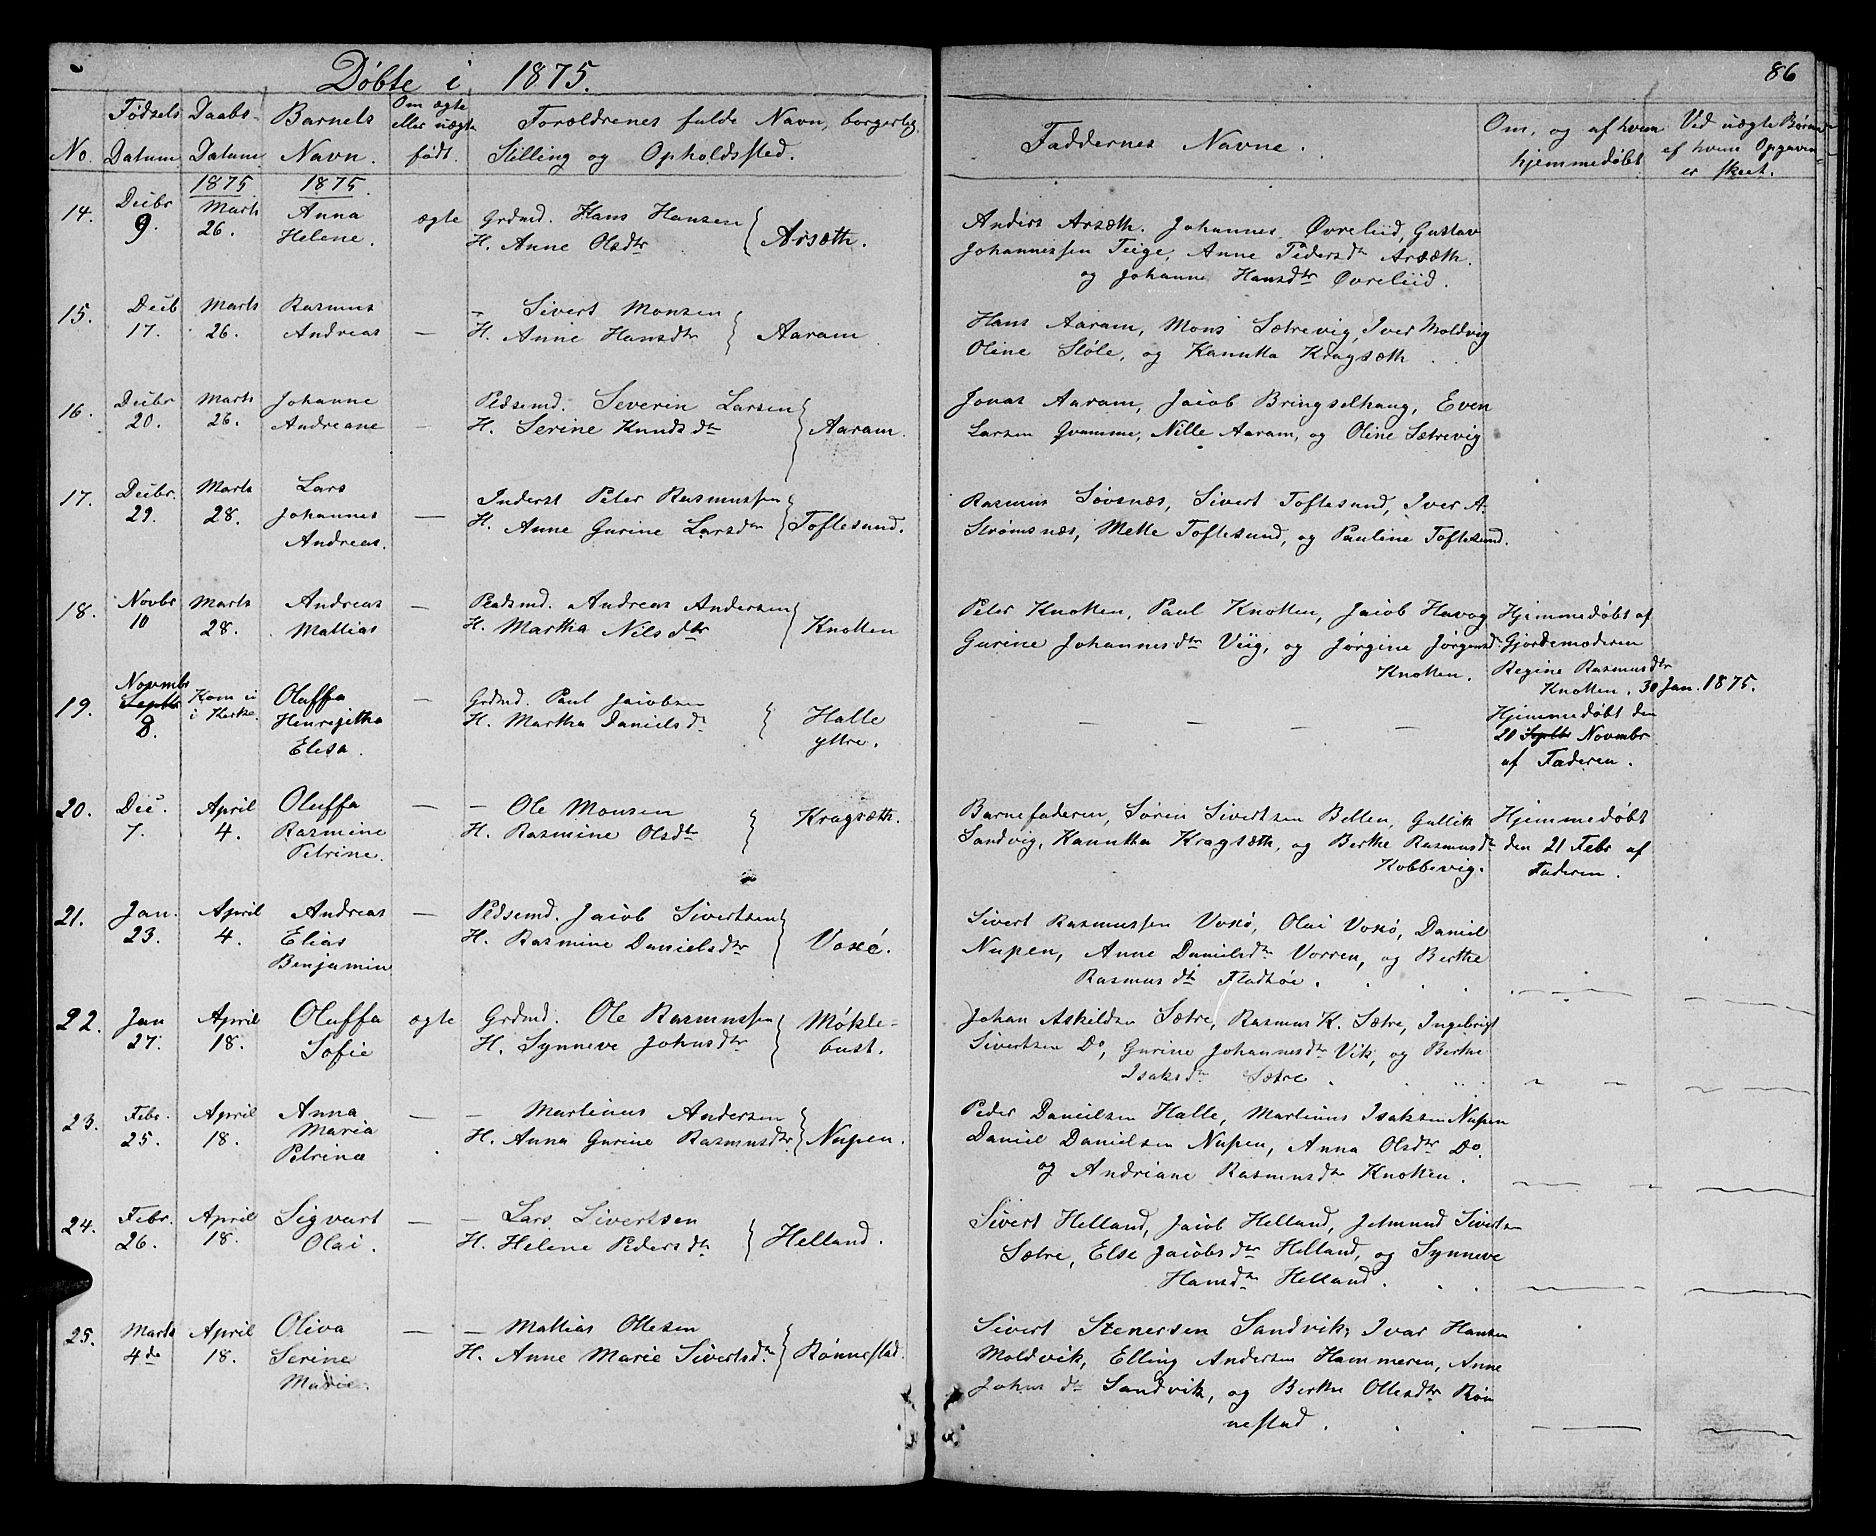 Døbte i 1875.
86
No.
Fødsels Datum
Daabs- Datum
Barnets Navn.
Om ægte eller uægte født.
Forældrenes fulde Navn, borgerlig
Stilling og Opholdssted.
Faddernes Navne.
Om, og af hvem hjemmedøbt.
Ved uægte Børn af hvem Opgaven er skeet.
1875 1875
14. Decbr 9. Marts 26. Anna Helene. ægte Grdmd. Hans Hansen
H. Anne Olsdtr Arsæth.
Anders Arsæth. Johannes Øvreliid, Gustav
Johannessen Teige, Anne Pedersdtr Arsæth.
og Johanne Hansdtr Øvreliid.
15. Decb 17. Marts 26. Rasmus Andreas — — Sivert Monsen
H. Anne Hansdtr Aaram
Hans Aaram, Mons Sætrevig, Iver Moldvig
Oline Støle, og Kanutta Kragsæth.
16. Decbr 20. Marts 26. Johanne Andreane — Pldsemd. Severin Larsen
H. Serine Knudsdtr Aaram.
Jonas Aaram, Jacob Bringselhaug, Even
Larsen Gvamme, Nille Aaram, og Oline Sætrevig
17. Decbr. 29. Marts 28. Lars Johannes Andreas. — Inderst Peter Rasmussen
H. Anne Gurine Larsdtr Toftesund.
Rasmus Søvsnæs, Sivert Toftesund, Iver A.
Strømsnæs, Mette Toftesund, og Pauline Toftesund.
18. Novbr 10 Marts 28. Andreas Mattias — Pladsmd. Andreas Andersen
H. Martha Nilsdtr Knotten
Peter Knotten, Paul Knotten, Jacob Havog
Gurine Johannesdtr Viig, og Jørgine Jørgensd.
Knotten.
Hjemmedøbt af
Gjordemoderen
Regine Rasmusdtr
Knotten. 30 Jan. 1875.
19. Novmbr Septbr 8. Kom ei i Kirke. Oluffa Henrigitha Elesa. — Grdmd. Paul Jacobsen
H. Martha Danielsdtr Halle yttre.
— — — —
Hjemmedøbt den
20 Septbr Novmbr
af Faderen.
20. Dec. 7. April 4. Oluffa Rasmine Petrine. — — Ole Monsen
H. Rasmine Olsdtr Kragsæth.
Barnefaderen, Søren Sivertsen Bellen, Gullik
Sandvig, Kanutta Kragsæth, og Berthe Rasmusdtr
Kobbevig.
Hjemmedøbt
den 21 Febr af
Faderen.
21. Jan. 23. April 4. Andreas Elias Benjamin — Pldsemd. Jacob Sivertsen
H. Rasmine Danielsdtr Voxø.
Sivert Rasmussen Voxø, Olai Voxø, Daniel
Nupen, Anne Danielsdtr Vorren, og Berthe
Rasmusdtr Fladhøe.
22. Jan 27. April 18. Oluffa Sofie ægte Grdmd. Ole Rasmussen
H. Synneve Johnsdtr Møkle- bust.
Johan Askildsen Sætre, Rasmus K. Sætre, Ingebrigt
Sivertsen Do, Gurine Johannesdtr Vik, og Berthe
Isaksdtr Sætre.
23. Febr. 25. April 18. Anna Maria Petrina — — Martinus Andersen
H. Anna Gurine Rasmusdtr Nupen.
Peder Danielsen Halle, Martinus Isaksen Nupen
Daniel Danielsen Nupen, Anna Olsdtr Do.
og Andriane Rasmusdtr Knotten.
24. Febr. 26. April 18. Sigvart Olai. — — Lars Sivertsen
H. Helene Pedersdtr Helland.
Sivert Helland, Jacob Helland, Jetmund Sivertsen
Sætre, Else Jacobsdtr Helland, og Synneve
Hansdtr Helland.
25. Marts 4de April 18. Oliva Serine Marie. — — Mattias Ottesen
H. Anne Marie Sivertsdtr Rønnestad.
Sivert Stenersen Sandvik, Ivar Hansen
Moldvik, Elling Andersen Hammeren, Anne
Johnsdtr Sandvik, og Berthe Ottesdtr Røn
nestad.